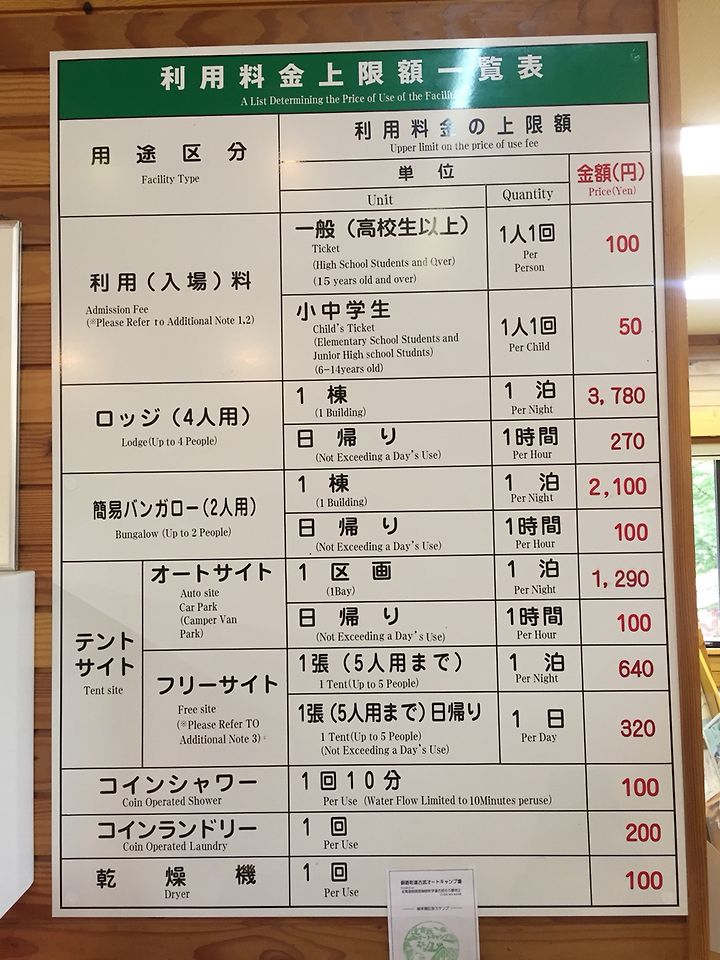 利用料金上限額一覧表
A List Determining the Price of Use of the
用途区分
Facility Type
利用料金の上限額
Upper limit on the price of use fee
単位
Unit
Quantity
金額(円)
Price(Yen)
利用(入場)料
Admission Fee
(※Please Refer to Additional Note 1,2)
一般(高校生以上)
Ticket
(High School Students and Over)
(15 years old and over)
1人1回
Per
Person
100
小中学生
Child's Ticket
(Elementary School Students and
Junior High school Studnts)
(6-14years old)
1人1回
Per Child
50
ロッジ(4人用)
Lodge(Up to 4 People)
1棟
(1 Building)
1泊
Per Night
3,780
日帰り
(Not Exceeding a Day's Use)
1時間
Per Hour
270
簡易バンガロー(2人用)
Bungalow (Up to 2 People)
1棟
(1 Building)
1泊
Per Night
2,100
日帰り
(Not Exceeding a Day's Use)
1時間
Per Hour
100
テント
サイト
Tent site
オートサイト
Auto site
Car Park
(Camper Van
Park)
1区画
(1Bay)
1泊
Per Night
1,290
日帰り
(Not Exceeding a Day's Use)
1時間
Per Hour
100
フリーサイト
Free site
(※Please Refer TO
Additional Note 3)
1張(5人用まで)
1 Tent(Up to 5 People)
1泊
Per Night
640
1張(5人用まで)日帰り
1 Tent(Up to 5 People)
(Not Exceeding a Day's Use)
1日
Per Day
320
コインシャワー
Coin Operated Shower
1回10分
Per Use (Water Flow Limited to 10Minutes peruse)
100
コインランドリー
Coin Operated Laundry
1回
Per Use
200
乾燥機
Dryer
1回
Per Use
100